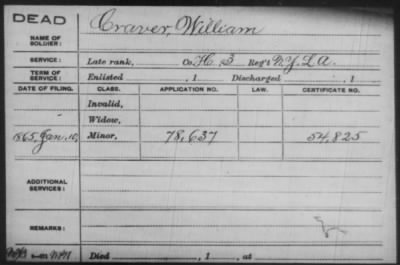 DEAD
NAME OF SOLDIER: Craver, William
SERVICE: Late rank, Co. H. 3 Reg't N.Y.L.A.
TERM OF SERVICE: Enlisted , 1 Discharged , 1
DATE OF FILING. CLASS. APPLICATION NO. LAW. CERTIFICATE NO.
Invalid,
Widow,
1865, Jan. 10, Minor, 78,637 54,825
ADDITIONAL SERVICES:
REMARKS:
Died , 1 , at